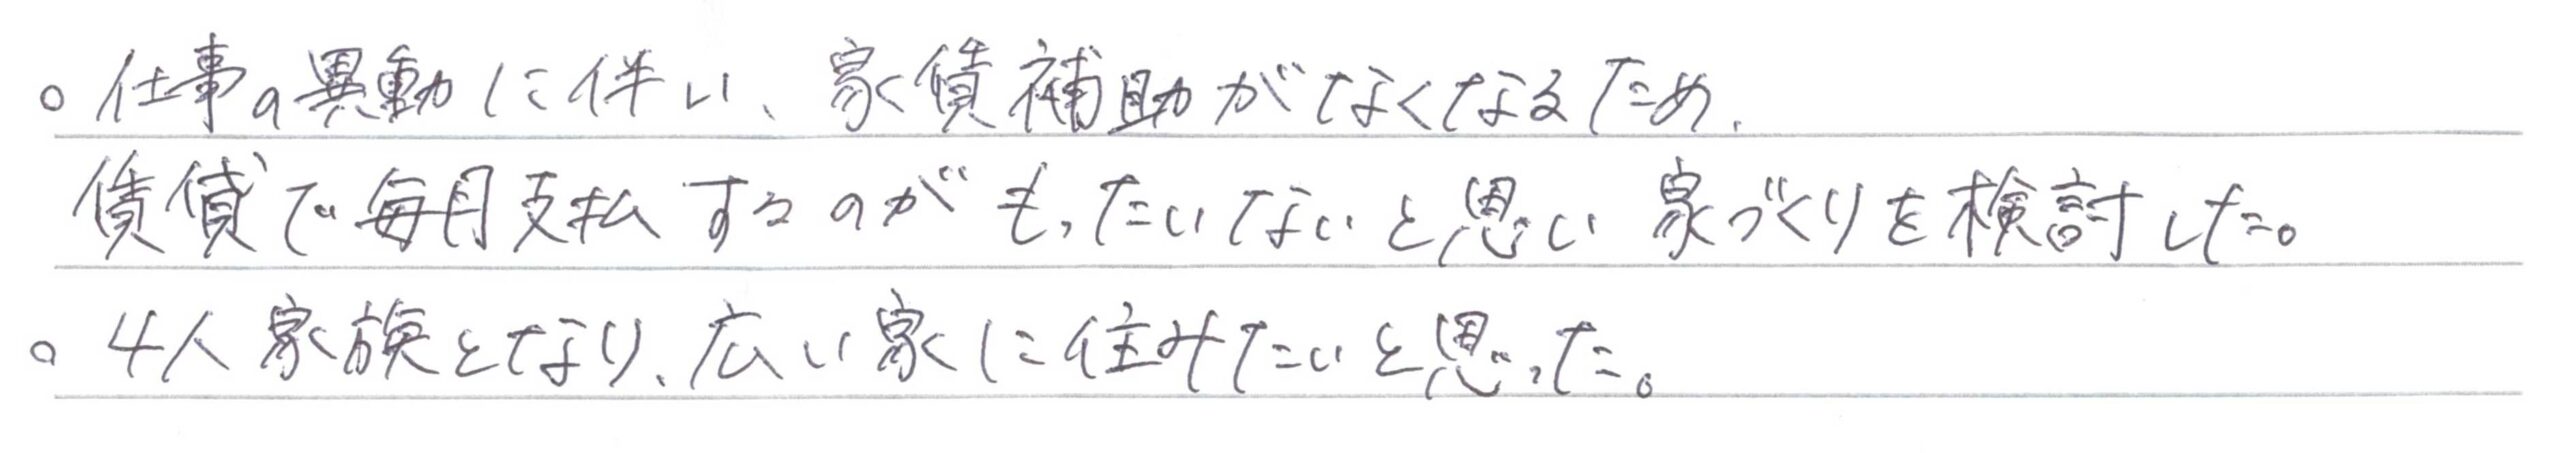 ○ 仕事の異動に伴い、家賃補助がなくなるため、
賃貸で毎月支払するのがもったいないと思い家づくりを検討した。
○ 4人家族となり、広い家に住みたいと思った。